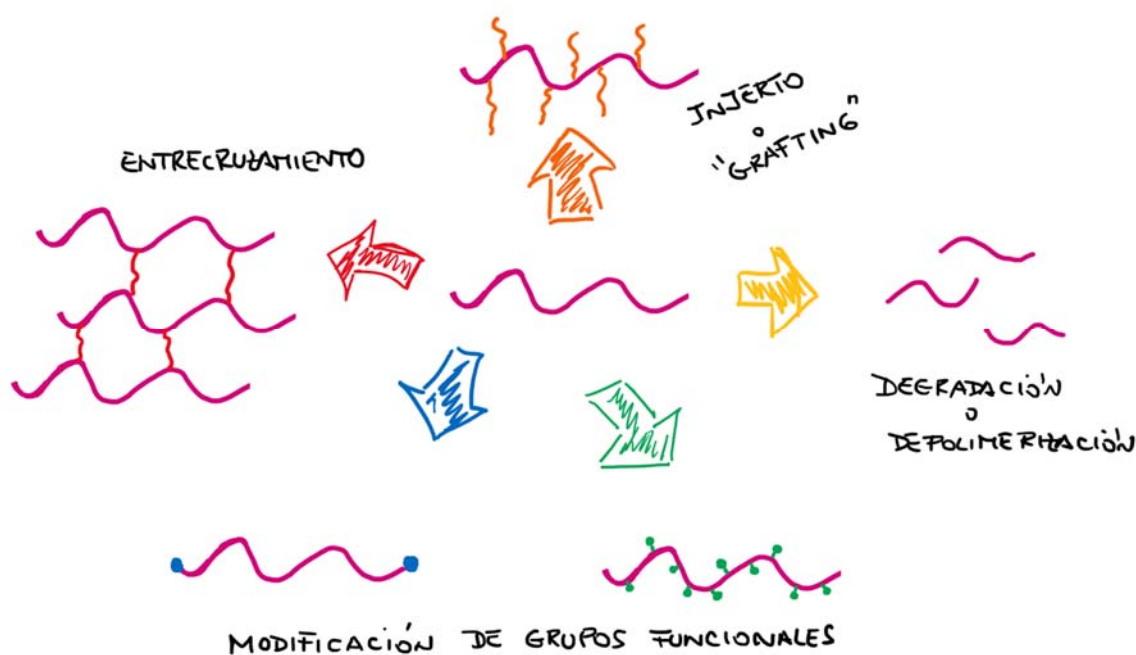 INJERTO
o
"GRAFTING"
ENTRECRUZAMIENTO
DEGRADACIÓN
o
DEPOLIMERIZACIÓN
MODIFICACIÓN DE GRUPOS FUNCIONALES